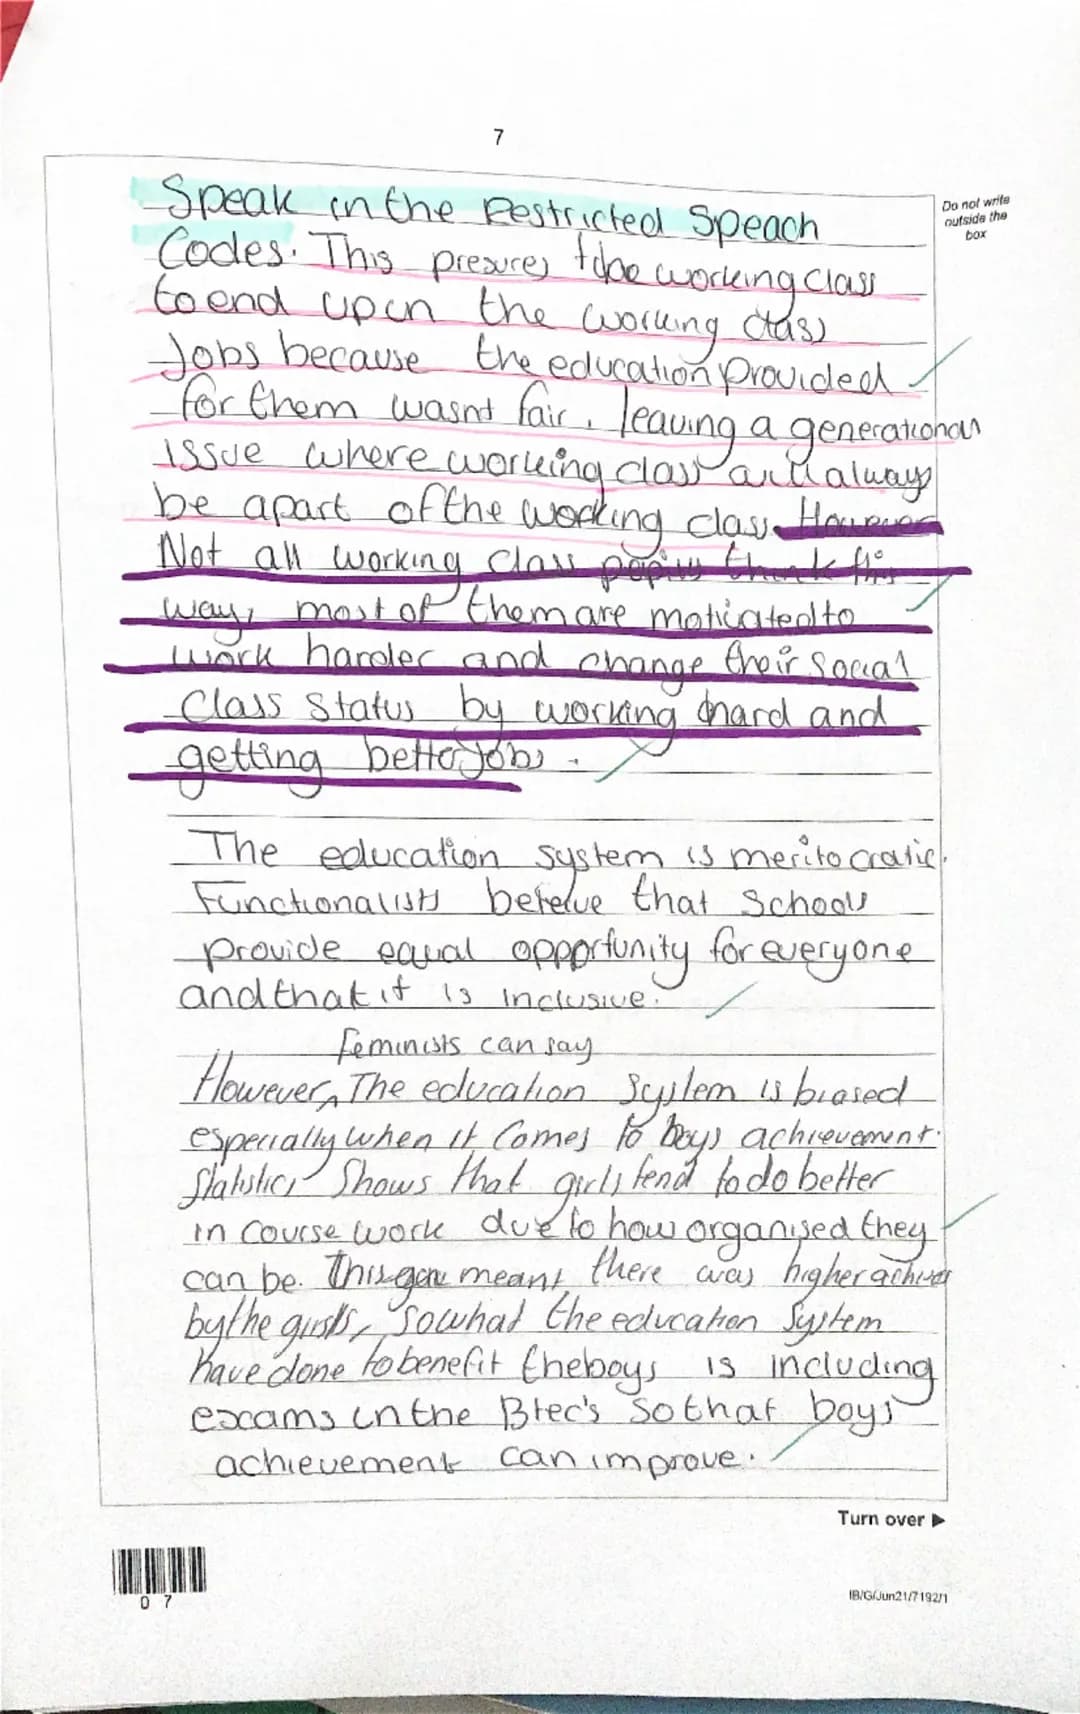 7
Do not write
outside the
box
Speak in the Restricted Speach
Codes. This presures the working class
to end up in the working class
Jobs because the education provided
for them wasnt fair, leaving a generational
issue where working class will always
be apart of the working class. However
Not all working class pupils think this
way, most of them are motivated to
work harder and change their social
Class status by working hard and
getting better jobs.
The education system is meritocratic.
Functionalists beleive that schools
provide equal opportunity for everyone
and that it is inclusive.
feminists can say
However, The education system is biased
especially when it comes to boys achievement.
Statistics Shows that girls tend to do better
in course work due to how organised they
can be. This meant there was higher
by the girls, so what the education System
have done to benefit the boys is including
exams in the Btec's so that boys
achievement can improve.
Turn over ►
0 7
IB/G/Jun21/7192/1